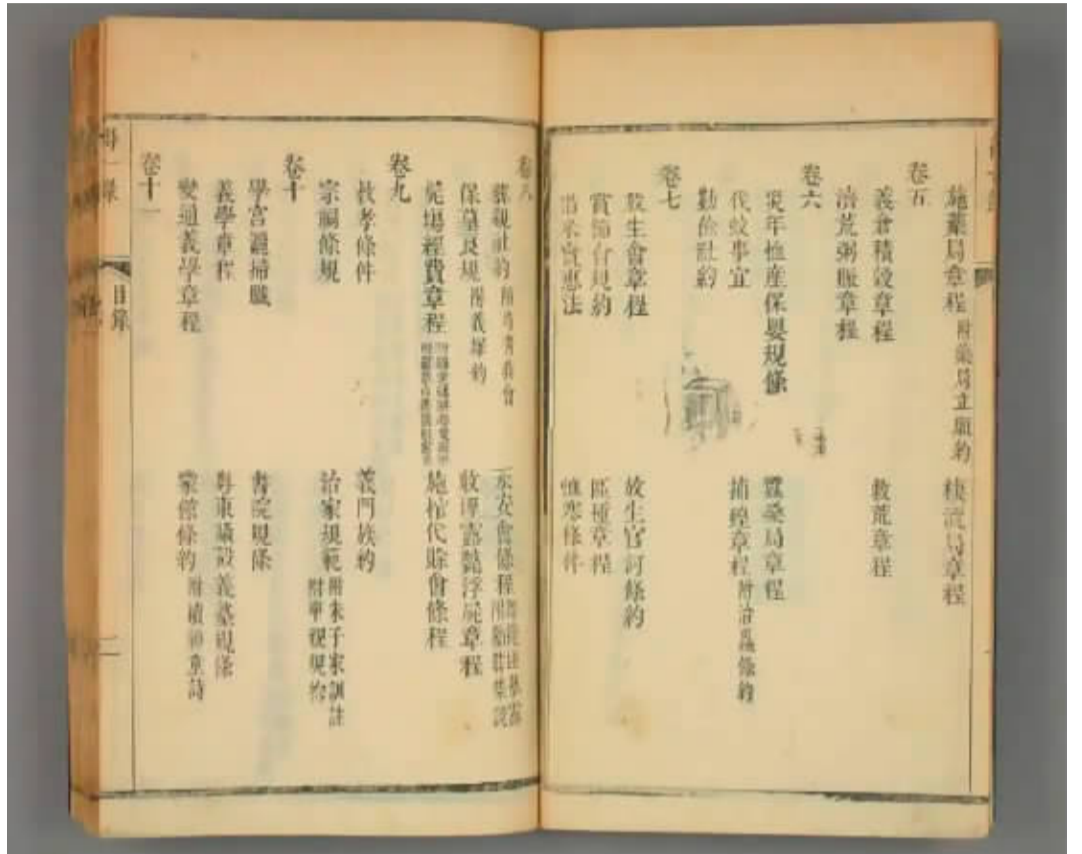 施藥局章程 附藥局立願約 棲流局章程
卷五
義倉積穀章程 救荒章程
濟荒粥賑章程
卷六
災年恤產保嬰規條 蠶桑局章程
伐蛟事宜 捕蝗章程 附治蟲條約
勤儉社約
卷七
放生會章程 放生官河條約
賞節會規約 區種章程
惠法 恤寒條件
卷八
親社約 會 永安會條程
保墓良規 附義塚約 收埋露骸浮屍章程
屍場經費章程 施棺代賒會條程
卷九
教孝條件 義門族約
宗祠條規 治家規範 附朱子家訓註
卷十
學宮灑掃職 書院規條
義學章程 粵東議設義塾規條
變通義學章程 蒙館條約 附續神童詩
卷十一
一錄
目錄
二